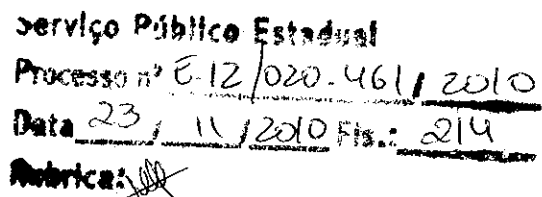 Serviço Público Estadual
Processo nº E-12/020.461/2010
Data 23/11/2010 Fls.: 214
Rubrica: